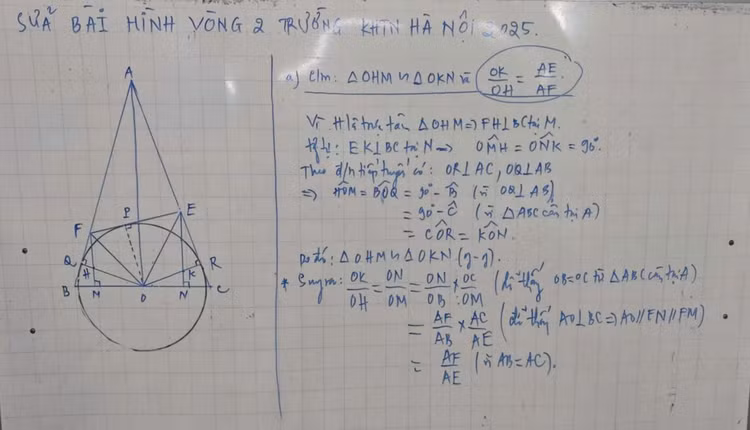 SỬA BÀI HÌNH VÒNG 2 TRƯỜNG KHTN HÀ NỘI 2025.
a) C/m: △OHM ∽ △OKN và OK/OH = AE/AF.
Vì H là trực tâm △OHM ⇒ FH⊥BC tại M.
EK⊥BC tại N ⇒ OMH = ONK = 90°.
Theo t/c tiếp tuyến có: OR⊥AC, OQ⊥AB
⇒ HOM = BOQ = 90° - B (vì OQ⊥AB)
= 90° - C (vì △ABC cân tại A)
= COR = KON.
Do đó: △OHM ∽ △OKN (g-g).
* Suy ra: OK/OH = ON/OM = ON/OB × OC/OM (dễ thấy OB=OC từ △ABC cân tại A)
= AF/AB × AC/AE (dễ thấy AO⊥BC ⇒ AO//EN//FM)
= AF/AE (vì AB=AC).
A
P
F
E
Q
H
K
R
B
M
O
N
C